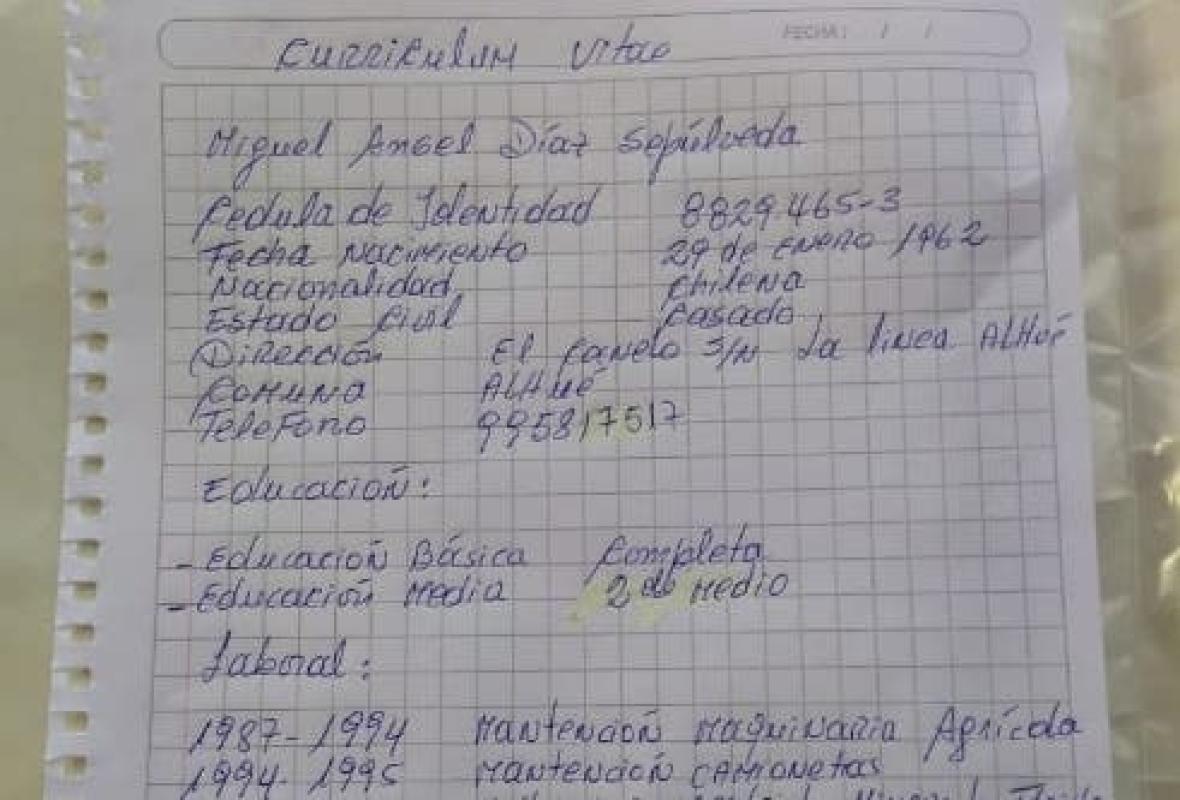 FECHA: / /
Curriculum Vitae
Miguel Angel Díaz Sepúlveda
Cedula de Identidad 8829465-3
Fecha Nacimiento 29 de Enero 1962
Nacionalidad chilena
Estado Civil Casado
Dirección El Canelo S/N La linea ALHué
Comuna ALHué
Telefono 995817517
Educación:
- Educación Básica Completa
- Educación Media 2do Medio
Laboral:
1987-1994 Mantención Maquinaria Agrícola
1994-1995 Mantención camionetas